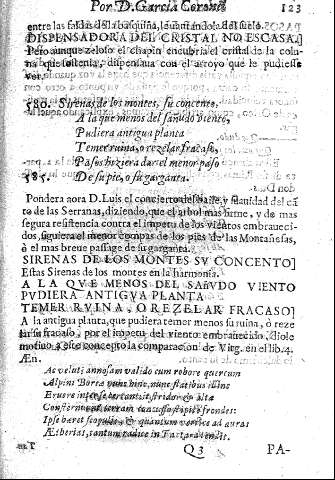 Por D. Garcia Coronel 123
entre las faldas de la basquiña, leuantandola del suelo.
DISPENSADORA DEL CRISTAL NO ESCASA]
Pero aunque zeloso el chapin encubria el cristal de la colu-
na que sostenia, dispensaua con el arroyo que le pudiesse
ver.
580. Sirenas de los montes, su concento,
A la que menos del sañudo viento,
Pudiera antigua planta
Temer ruina, o rezelar fracaso,
Passos hiziera dar el menor passo
585. De su pie, o su garganta.
Pondera aora D. Luis el concierto del baile, y suauidad del cã
to de las Serranas, diziendo, que el arbol mas firme, y de mas
segura resistencia contra el impetu de los vientos embraueci-
dos, siguiera el menor compas de los pies de las Montañesas,
ò el mas breue passage de su garganta.
SIRENAS DE LOS MONTES SV CONCENTO]
Estas Sirenas de los montes en la harmonia.
A LA QVE MENOS DEL SAñVDO VIENTO
PVDIERA ANTIGVA PLANTA
TEMER RVINA, O REZELAR FRACASO]
A la antigua planta, que pudiera temer menos su ruina, ò reze
lar su fracaso, por el impetu del viento embrauecido, diole
motiuo a este concepto la comparacion de Virg. en el lib. 4.
Æn.
Ac veluti annosam valido cum robore quercum
Alpini Boreæ nunc hinc, nunc flatibus illinc
Eruere inter se certant, it stridor, & alta
Consternunt terram concusso stipite frondes:
Ipse hæret scopulis, & quantum vertice ad auras
Ætherias, tantum radice in Tartara tendit.
Q3 PA-